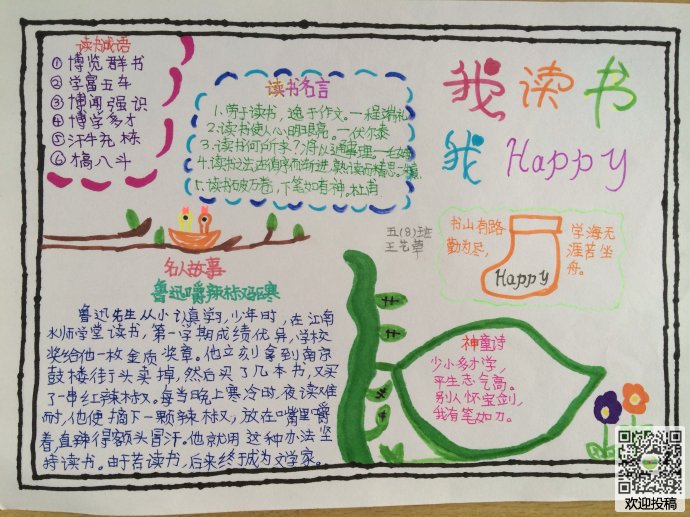 读书成语
①博览群书
②学富五车
③博闻强识
④博学多才
⑤汗牛充栋
⑥才高八斗
读书名言
1.劳于读书，逸于作文。—程端礼
2.读书使人心明眼亮。—伏尔泰
5.读书破万卷，下笔如有神。杜甫
我读书
我Happy
五(8)班
书山有路
勤为径，
学海无
涯苦坐
舟。
Happy
名人故事
鲁迅嚼辣椒驱寒
鲁迅先生从小认真学习，少年时，在江南
水师学堂读书，第一学期成绩优异，学校
奖给他一枚金质奖章。他立刻拿到南京
鼓楼街头卖掉，然后买了几本书，又买
了一串红辣椒。每当晚上寒冷时，夜读难
耐，他便摘下一颗辣椒，放在嘴里嚼
着，直辣得额头冒汗。他就用这种办法坚
持读书。由于苦读书，后来终于成为文学家。
神童诗
少小多才学，
平生志气高。
别人怀宝剑，
我有笔如刀。
欢迎投稿